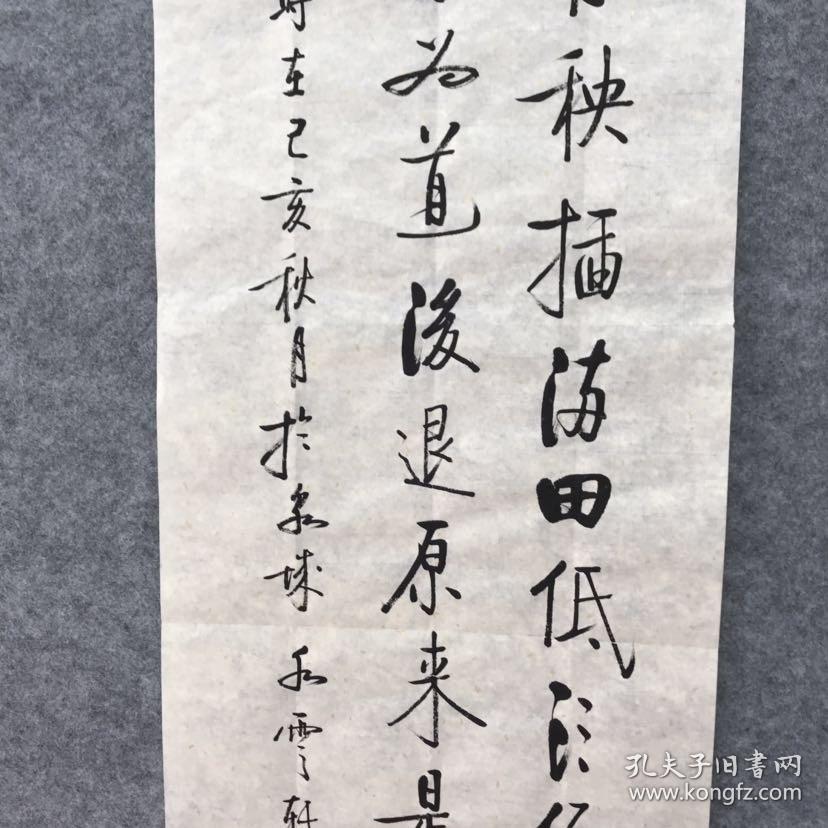 秧插满田低头
为道後退原来是
时在己亥秋月於泉城水雲轩
孔夫子旧书网
www.kongfz.com